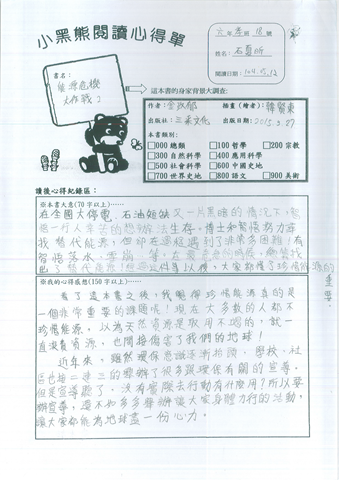 小黑熊閱讀心得單
六年孝班18號
姓名:
閱讀日期:104.5.12
書名:
能源危機
大作戰2
這本書的身家背景大調查:
作者:金政郁 插畫(繪者):韓賢東
出版社:三采文化 出版日期:2015.3.27
本書類別:
□000 總類 □100 哲學 □200 宗教
□300 自然科學 □400 應用科學
□500 社會科學 □600 中國史地
□700 世界史地 □800 語文 □900 美術
讀後心得紀錄區:
※本書大意(70字以上)……
在全國大停電、石油短缺又一片黑暗的情況下,智
悟一行人辛苦的想辦法生存,博士和智悟努力尋
找替代能源,但卻在過程遇到了非常多困難!有
智悟落水、
了替代能源!想過這件事以後,大家都懂了珍惜能源的
重要。
※我的心得感想(150字以上)……
看了這本書之後,我覺得珍惜能源真的是
一個非常重要的課題呢!現在大多數的人都不
珍惜能源,以為天然資源是取用不竭的,就一
直浪費資源,也間接傷害了我們的地球!
近年來,雖然環保意識逐漸抬頭,學校、社
區也接二連三的舉辦了很多跟環保有關的宣導,
但是宣導歸了,沒有實際去行動有什麼用?所以要
辦宣導,還不如多多舉辦讓大家身體力行的活動,
讓大家都能為地球盡一份心力。